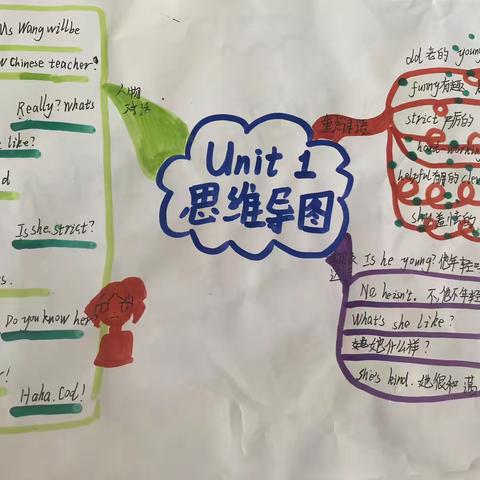 Ms Wang will be
Chinese teacher.
Really? What's
like?
d
Is she strict?
s.
Do you know her?
!
Haha. Cod!
人物
对话
Unit 1
思维导图
重点词语
old 老的 young
funny 有趣
strict 严厉的
hard-working
helpful 有用的 clev
shy 害羞的
Is he young? 他年轻
No he isn't. 不,他不年轻
What's she like?
她什么样?
She's kind. 她很和蔼